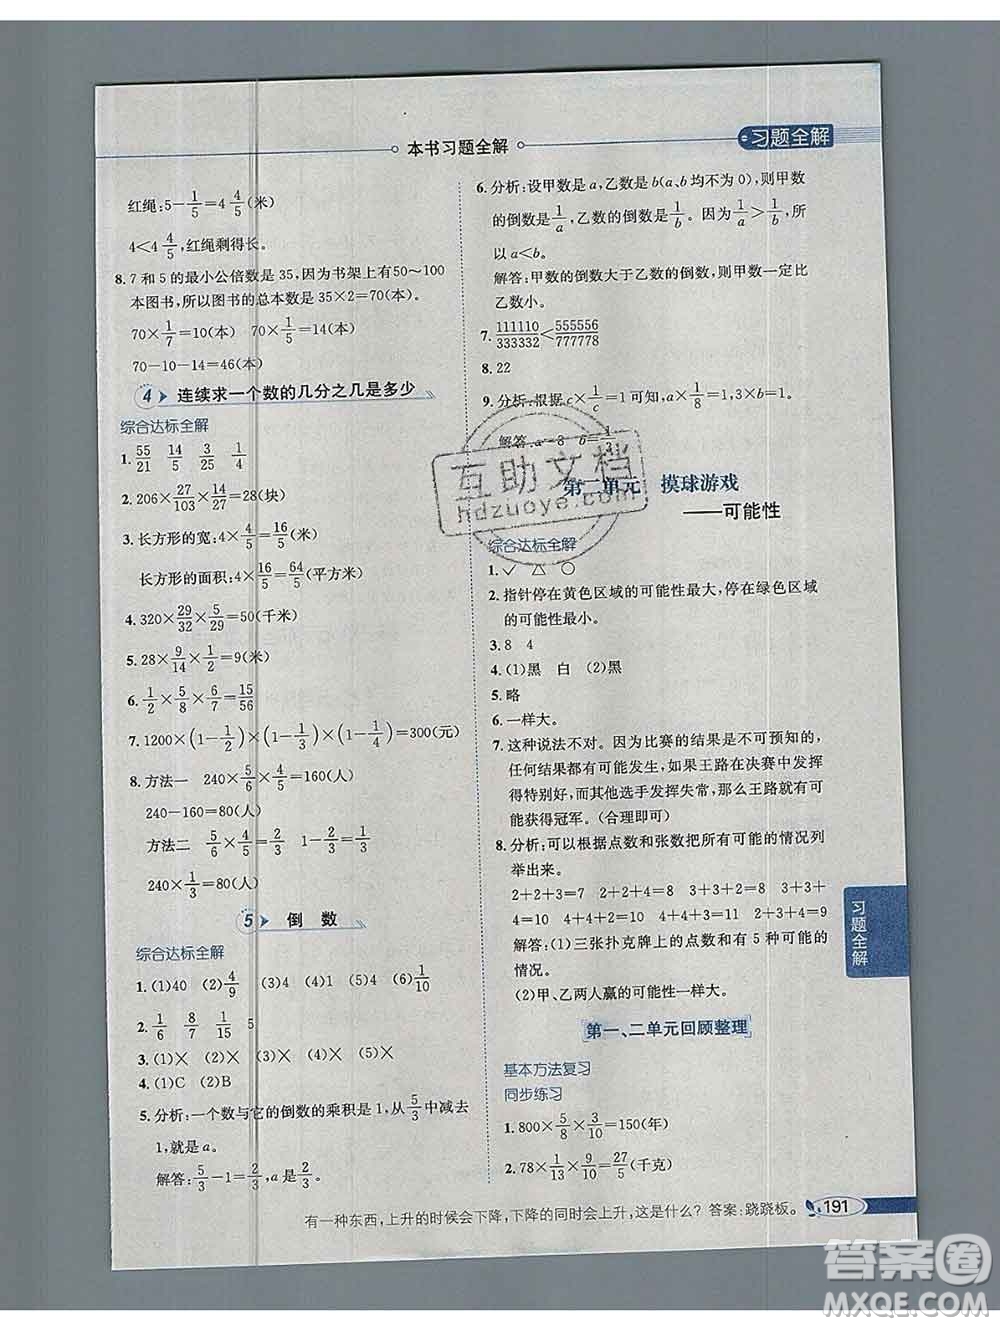 本书习题全解
习题全解
红绳:5－1/5＝4 4/5(米)
4＜4 4/5,红绳剩得长。
8.7和5的最小公倍数是35,因为书架上有50～100
本图书,所以图书的总本数是35×2＝70(本)。
70×1/7＝10(本) 70×1/5＝14(本)
70－10－14＝46(本)
4 连续求一个数的几分之几是多少
综合达标全解
1. 55/21 14/5 3/25 1/4
2. 206×27/103×14/27＝28(块)
3. 长方形的宽:4×4/5＝16/5(米)
长方形的面积:4×16/5＝64/5(平方米)
4. 320×29/32×5/29＝50(千米)
5. 28×9/14×1/2＝9(米)
6. 1/2×5/8×6/7＝15/56
7. 1200×(1－1/2)×(1－1/3)×(1－1/4)＝300(元)
8. 方法一 240×5/6×4/5＝160(人)
240－160＝80(人)
方法二 5/6×4/5＝2/3 1－2/3＝1/3
240×1/3＝80(人)
5 倒 数
综合达标全解
1. (1)40 (2)4/9 (3)4 (4)1 (5)4 (6)1/10
2. 1/6 8/7 1/15 5
3. (1)× (2)× (3)× (4)×
4. (1)C (2)B
5. 分析:一个数与它的倒数的乘积是1,从5/3中减去
1,就是a。
解答:5/3－1＝2/3,a是2/3。
6. 分析:设甲数是a,乙数是b(a、b均不为0),则甲数
的倒数是1/a,乙数的倒数是1/b。因为1/a＞1/b,所
以a＜b。
解答:甲数的倒数大于乙数的倒数,则甲数一定比
乙数小。
7. 111110/333332＜555556/777778
8. 22
9. 分析:根据c×1/c＝1可知,a×1/8＝1,3×b＝1。
解答:a＝8 b＝1/3
第二单元 摸球游戏
——可能性
综合达标全解
1. ✓ △ ○
2. 指针停在黄色区域的可能性最大,停在绿色区域
的可能性最小。
3. 8 4
4. (1)黑 白 (2)黑
5. 略
6. 一样大。
7. 这种说法不对。因为比赛的结果是不可预知的,
任何结果都有可能发生,如果王路在决赛中发挥
得特别好,而其他选手发挥失常,那么王路有可
能获得冠军。(合理即可)
8. 分析:可以根据点数和张数把所有可能的情况列
举出来。
2＋2＋3＝7 2＋2＋4＝8 3＋3＋2＝8 3＋3＋
4＝10 4＋4＋2＝10 4＋4＋3＝11 2＋3＋4＝9
解答:(1)三张扑克牌上的点数和有5种可能的
情况。
(2)甲、乙两人赢的可能性一样大。
第一、二单元回顾整理
基本方法复习
同步练习
1. 800×5/8×3/10＝150(年)
2. 78×1/13×9/10＝27/5(千克)
习题全解
有一种东西,上升的时候会下降,下降的同时会上升,这是什么?答案:跷跷板。 191
互助文档
hdzuoye.com
答案圈
MXQE.COM